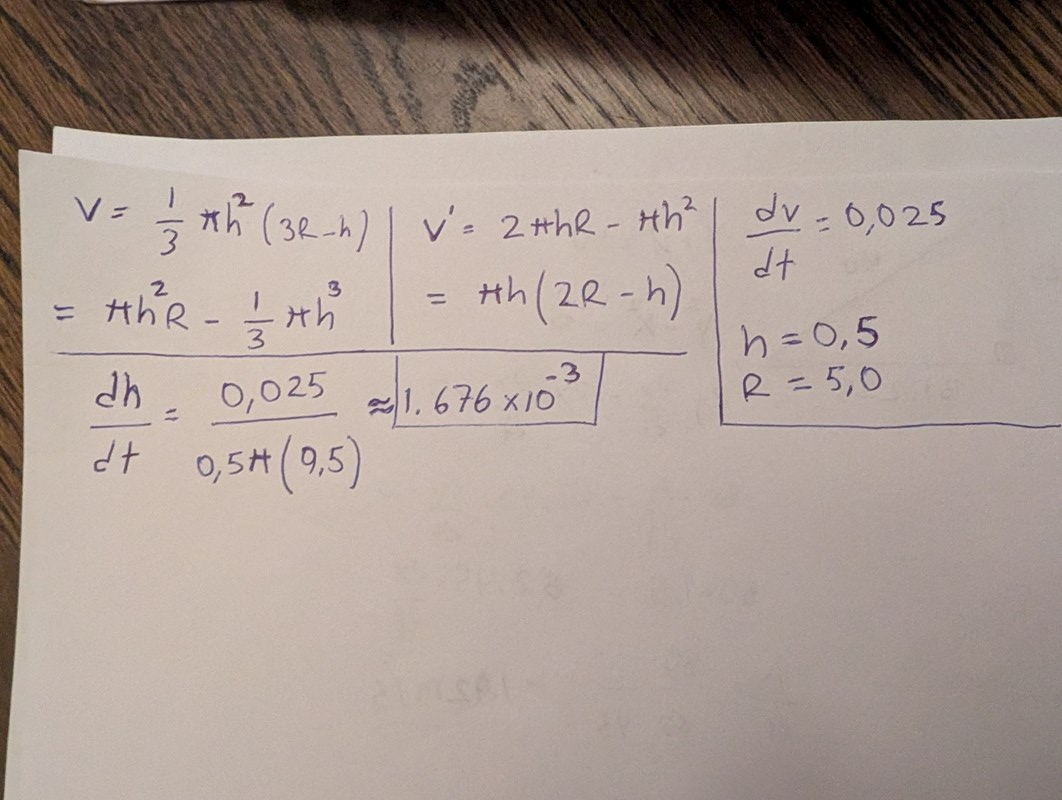 V = 1/3 πh² (3R-h)
= πh²R - 1/3 πh³
V' = 2πhR - πh²
= πh(2R - h)
dv/dt = 0,025
h = 0,5
R = 5,0
dh/dt = 0,025 / 0,5π(9,5) ≈ 1.676 ×10⁻³